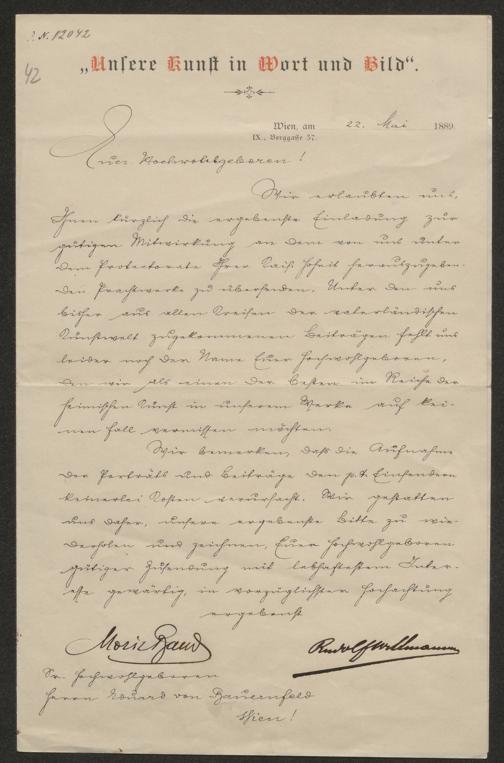 I. N. 12042
42
„Unsere Kunst in Wort und Bild“.
Wien, am 22. Mai 1889
IX., Berggasse 37.
Euer Hochwohlgeboren!
Wir erlaubten uns,
Ihnen kürzlich die ergebenste Einladung zur
gütigen Mitwirkung an dem von uns unter
dem Protectorate Ihrer Kais. Hoheit herauszugeben-
den Prachtwerke zu übersenden. Unter den uns
bisher aus allen Kreisen der vaterländischen
Kunstwelt zugekommenen Beiträgen fehlt uns
leider noch der Name Euer Hochwohlgeboren,
den wir als einen der besten im Reiche der
heimischen Kunst in unserem Werke auf kei-
nen Fall vermissen möchten.
Wir bemerken, daß die Aufnahme
der Porträts und Beiträge den p. t. Einsendern
keinerlei Kosten verursacht. Wir gestatten
uns daher, unsere ergebenste Bitte zu wie-
derholen und zeichnen, Euer Hochwohlgeboren
gütiger Zusendung mit lebhaftestem Inter-
esse gewärtig, in vorzüglichster Hochachtung
ergebenst
Moriz Band Rudolf Willmann
Sr. Hochwohlgeboren
Herrn Eduard von Bauernfeld
Wien!